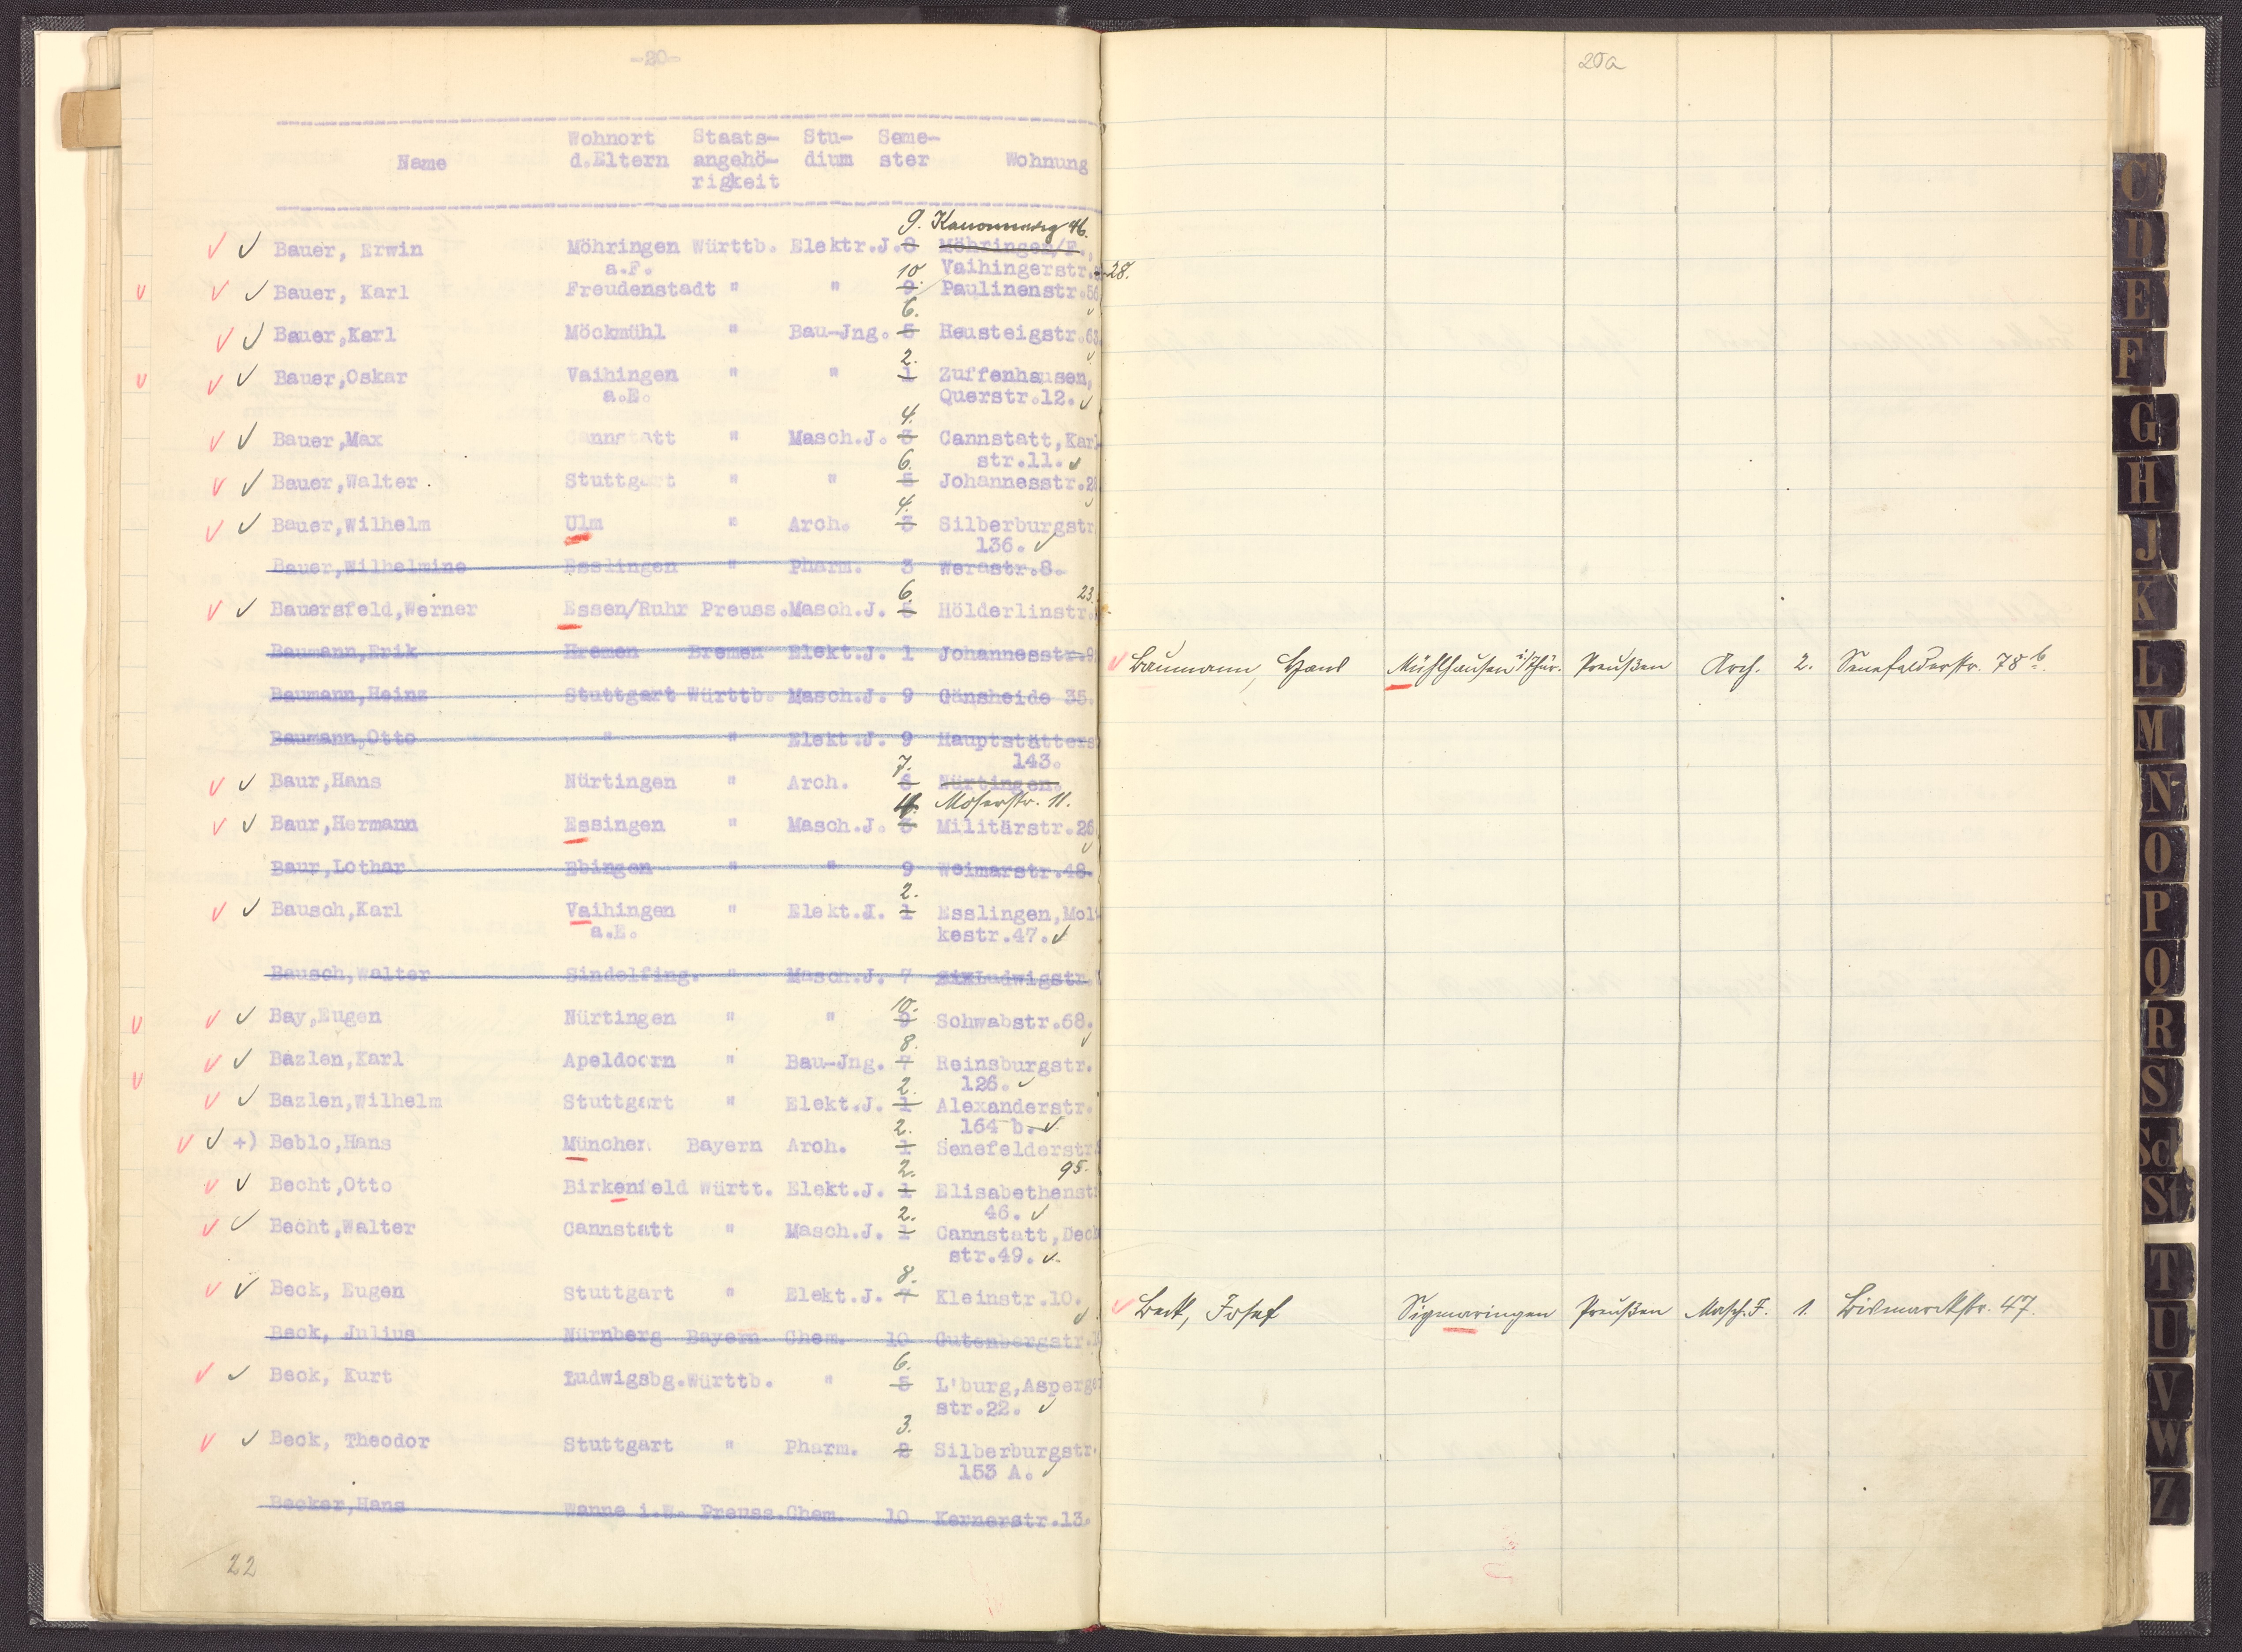 -20-
Name Wohnort d.Eltern Staats-angehö-rigkeit Stu-dium Seme-ster Wohnung
9. 46.
Bauer, Erwin Möhringen Württb. Elektr.J. 8 Möhringen/F.,
a.F. 10. Vaihingerstr. 28.
Bauer, Karl Freudenstadt " " 9. Paulinenstr.56
6.
Bauer,Karl Möckmühl " Bau-Jng. 5 Heusteigstr.63
2.
Bauer,Oskar Vaihingen " " 1 Zuffenhausen,
a.E. Querstr.12.
4.
Bauer,Max Cannstatt " Masch.J. 3 Cannstatt,Karl
6. str.11.
Bauer,Walter Stuttgart " " 5 Johannesstr.2
4.
Bauer,Wilhelm Ulm " Arch. 3 Silberburgstr
136.
Bauer,Wilhelmine Esslingen " Pharm. 3 Werastr.8.
6. 23.
Bauersfeld,Werner Essen/Ruhr Preuss.Masch.J. 5 Hölderlinstr.
Baumann,Erik Bremen Bremen Elekt.J. 1 Johannesstr.9
Baumann,Heinz Stuttgart Württb. Masch.J. 9 Gänsheide 35.
Baumann,Otto " " Elekt.J. 9 Hauptstätters
7. 143.
Baur,Hans Nürtingen " Arch. 6 Nürtingen.
4. Moserstr. 11.
Baur,Hermann Essingen " Masch.J. 3 Militärstr.26
Baur,Lothar Ebingen " " 9 Weimarstr.48.
2.
Bausch,Karl Vaihingen " Elekt.J. 1 Esslingen,Molt
a.E. kestr.47.
Bausch,Walter Sindelfing. " Masch.J. 7 Ludwigstr.
10.
Bay,Eugen Nürtingen " " 9 Schwabstr.68.
8.
Bazlen,Karl Apeldoorn " Bau-Jng. 7 Reinsburgstr.
2. 126.
Bazlen,Wilhelm Stuttgart " Elekt.J. 1 Alexanderstr.
2. 164 b.
+) Beblo,Hans München Bayern Arch. 1 Senefelderstr
2. 95.
Becht,Otto Birkenfeld Württ. Elekt.J. 1 Elisabethenstr
2. 46.
Becht,Walter Cannstatt " Masch.J. 1 Cannstatt,Deck
str.49.
8.
Beck, Eugen Stuttgart " Elekt.J. 7 Kleinstr.10.
Beck, Julius Nürnberg Bayern Chem. 10 Gutenbergstr.1
6.
Beck, Kurt Ludwigsbg.Württb. " 5 L'burg,Asperger
str.22.
3.
Beck, Theodor Stuttgart " Pharm. 2 Silberburgstr.
153 A.
Becker,Hans Wanne i.W. Preuss.Chem. 10 Kernerstr.13.
22
20a
Baumann, Hans Mühlhausen i/Thür. Preußen Arch. 2. Senefelderstr. 78 b.
Beck, Josef Sigmaringen Preußen Masch.J. 1. Bismarckstr. 47.
C
D
E
F
G
H
J
K
L
M
N
O
P
Q
R
S
Sch
St
T
U
V
W
Z